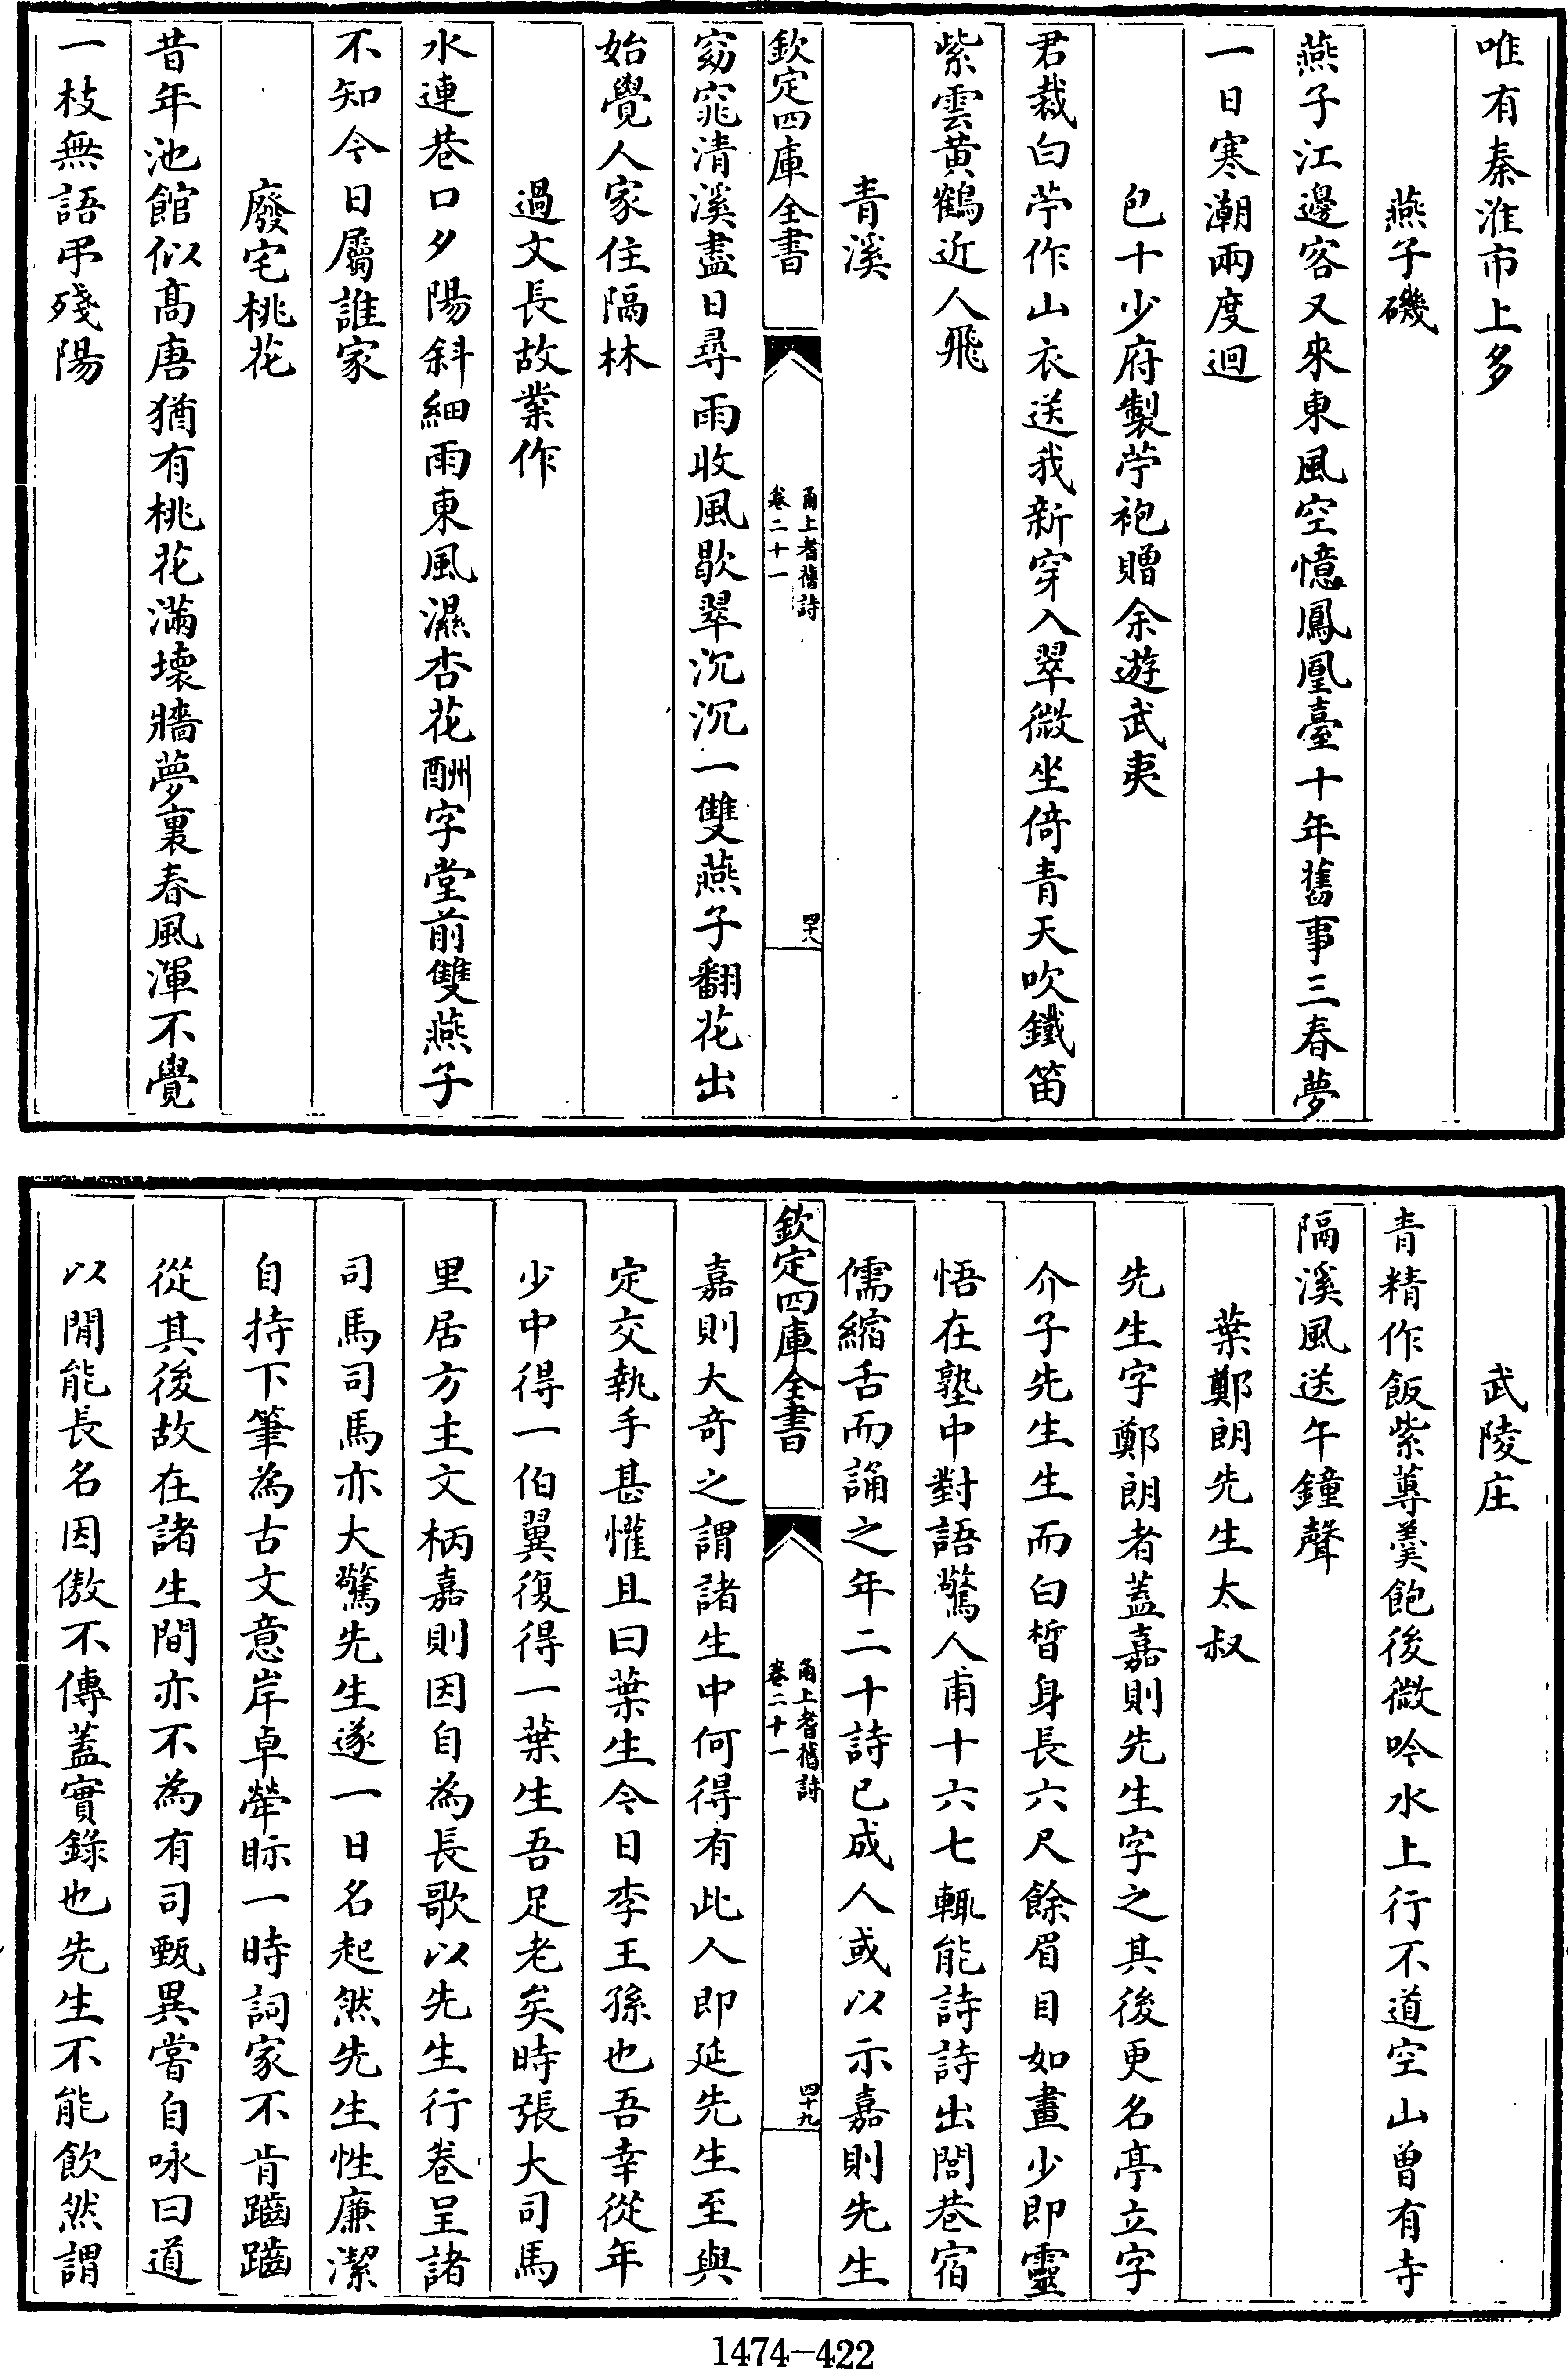 唯有秦淮市上多
燕子磯
燕子江邊客又來東風空憶鳳凰臺十年舊事三春夢
一日寒潮兩度迴
包十少府製苧袍贈余遊武夷
君裁白苧作山衣送我新穿入翠微坐倚青天吹鐵笛
紫雲黄鶴近人飛
青溪
欽定四庫全書
甬上耆舊詩
卷二十一
四十八
窈窕清溪盡日尋雨收風歇翠沉沉一雙燕子翻花出
始覺人家住隔林
過文長故業作
水連巷口夕陽斜細雨東風濕杏花酬字堂前雙燕子
不知今日屬誰家
廢宅桃花
昔年池館似髙唐猶有桃花滿壊牆夢裏春風渾不覺
一枝無語弔殘陽
武陵庄
青精作飯紫蓴羹飽後微吟水上行不道空山曽有寺
隔溪風送午鐘聲
葉鄭朗先生太叔
先生字鄭朗者蓋嘉則先生字之其後更名亭立字
介子先生生而白晳身長六尺餘眉目如畫少即靈
悟在塾中對語驚人甫十六七輒能詩詩出閭巷宿
儒縮舌而誦之年二十詩已成人或以示嘉則先生
欽定四庫全書
甬上耆舊詩
卷二十一
四十九
嘉則大竒之謂諸生中何得有此人即延先生至與
定交執手甚懽且曰葉生今日李王孫也吾幸從年
少中得一伯翼復得一葉生吾足老矣時張大司馬
里居方主文柄嘉則因自為長歌以先生行卷呈諸
司馬司馬亦大驚先生遂一日名起然先生性廉潔
自持下筆為古文意岸卓犖眎一時詞家不肯齷齪
從其後故在諸生間亦不為有司甄異嘗自咏曰道
以閒能長名因傲不傳蓋實錄也先生不能飲然謂
1474-422